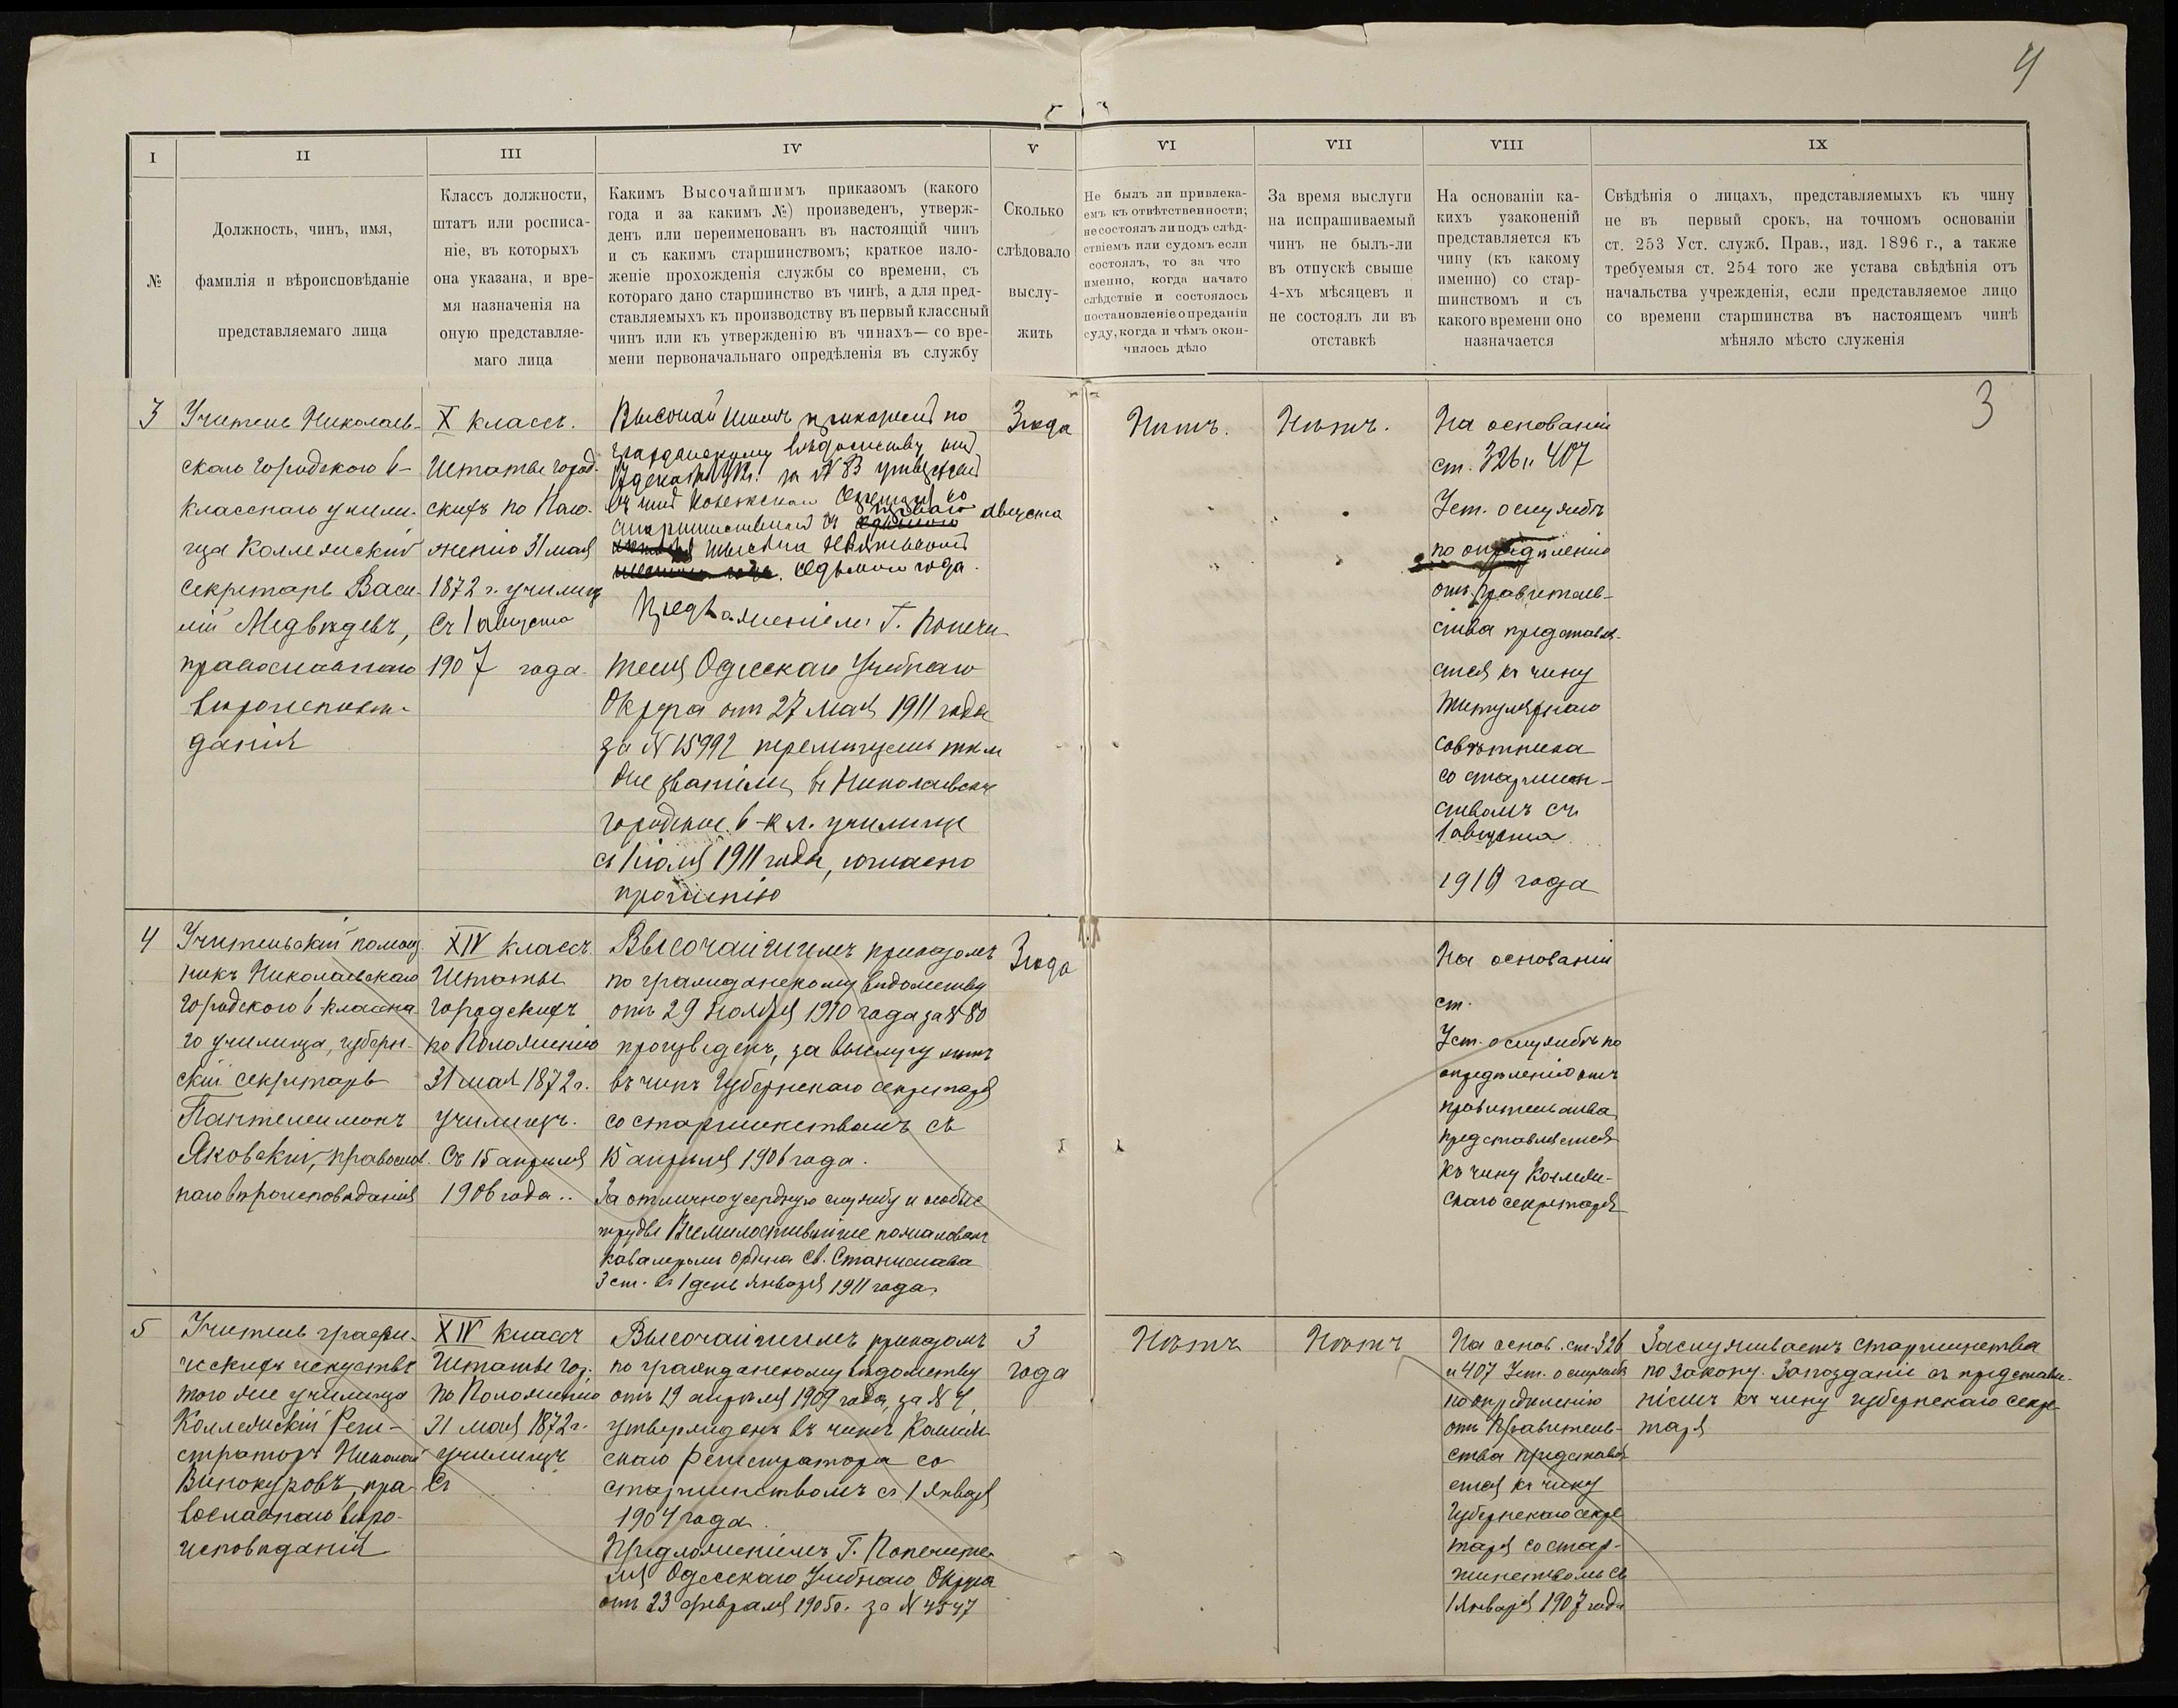 4
I
II
III
IV
V
VI
VII
VIII
IX
№
Должность, чинъ, имя,
фамилія и вѣроисповѣданіе
представляемаго лица
Классъ должности,
штатъ или росписа-
ніе, въ которыхъ
она указана, и вре-
мя назначенія на
оную представляе-
маго лица
Какимъ Высочайшимъ приказомъ (какого
года и за какимъ №) произведенъ, утверж-
денъ или переименованъ въ настоящій чинъ
и съ какимъ старшинствомъ; краткое изло-
женіе прохожденія службы со времени, съ
котораго дано старшинство въ чинѣ, а для пред-
ставляемыхъ къ производству въ первый классный
чинъ или къ утвержденію въ чинахъ— со вре-
мени первоначальнаго опредѣленія въ службу
Сколько
слѣдовало
выслу-
жить
Не былъ ли привлека-
емъ къ отвѣтственности;
не состоялъ ли подъ слѣд-
ствіемъ или судомъ если
состоялъ, то за что
именно, когда начато
слѣдствіе и состоялось
постановленіе о преданіи
суду, когда и чѣмъ окон-
чилось дѣло
За время выслуги
на испрашиваемый
чинъ не былъ-ли
въ отпускѣ свыше
4-хъ мѣсяцевъ и
не состоялъ ли въ
отставкѣ
На основаніи ка-
кихъ узаконеній
представляется къ
чину (къ какому
именно) со стар-
шинствомъ и съ
какого времени оно
назначается
Свѣдѣнія о лицахъ, представляемыхъ къ чину
не въ первый срокъ, на точномъ основаніи
ст. 253 Уст. служб. Прав., изд. 1896 г., а также
требуемыя ст. 254 того же устава свѣдѣнія отъ
начальства учрежденія, если представляемое лицо
со времени старшинства въ настоящемъ чинѣ
мѣняло мѣсто служенія
3
Учитель Николаев-
скаго городского 6-
класснаго учили-
ща Коллежскій
Секретарь Васи-
лій Медвѣдевъ,
православнаго
вѣроисповѣ-
данія
X классъ.
Штаты город-
скихъ по Поло-
женію 31 мая
1872 г. училищ
Съ 1 августа
1907 года.
Высочайшимъ приказомъ по
гражданскому вѣдомству отъ
за № 83 утвержденъ
въ чинѣ Коллежскаго Секретаря со
старшинствомъ съ перваго
августа
тысяча девятьсотъ
седьмого года.
Предложеніемъ Г. Попечи-
теля Одесскаго Учебнаго
Округа отъ 27 мая 1911 года
за № 15992 перемѣщенъ тѣмъ
же званіемъ въ Николаевское
городское 6-кл. училище
съ 1 іюля 1911 года, согласно
прошенію
3 года
Нѣтъ.
Нѣтъ.
На основаніи
ст. 326 и 407
Уст. о службѣ
по опредѣленію
отъ Правитель-
ства представля-
ется къ чину
Титулярнаго
совѣтника
со старшин-
ствомъ съ
1 августа
1910 года
3
4
Учительскій помощ-
никъ Николаевскаго
городского 6 классна-
го училища, губерн-
скій секретарь
Пантелеимонъ
Яковскій, православ-
наго вѣроисповѣданія
XIV классъ.
Штаты
городскихъ
по Положенію
31 мая 1872 г.
училищъ.
Съ 15 апрѣля
1906 года..
Высочайшимъ приказомъ
по гражданскому вѣдомству
отъ 29 ноября 1910 года за № 80
произведенъ, за выслугу лѣтъ
въ чинъ Губернскаго секретаря
со старшинствомъ съ
15 апрѣля 1906 года.
За отлично усердную службу и особые
труды Всемилостивѣйше пожалованъ
кавалеромъ ордена Св. Станислава
3 ст. въ 1 день января 1911 года.
3 года
На основаніи
ст.
Уст. о службѣ по
опредѣленію отъ
правительства
представляется
къ чину Коллеж-
скаго секретаря
5
Учитель графи-
ческихъ искусствъ
того же училища
Коллежскій Реги-
страторъ Николай
Винокуровъ, пра-
вославнаго вѣро-
исповѣданія
XIV классъ
Штаты гор.
по Положенію
31 мая 1872 г.
училищъ
Съ
Высочайшимъ приказомъ
по гражданскому вѣдомству
отъ 19 апрѣля 1909 года, за № 4,
утвержденъ въ чинѣ Коллеж-
скаго Регистратора со
старшинствомъ съ 1 Января
1904 года.
Предложеніемъ Г. Попечите-
ля Одесскаго Учебнаго Округа
отъ 23 февраля 1905 г. за № 4547
3
года
Нѣтъ
Нѣтъ
На основ. ст. 326
и 407 Уст. о службѣ
по опредѣленію
отъ Правитель-
ства представля-
ется къ чину
Губернскаго секре-
таря со стар-
шинствомъ съ
1 Января 1907 года
Заслуживаетъ старшинства
по закону. Запозданіе съ представле-
ніемъ къ чину губернскаго секре-
таря